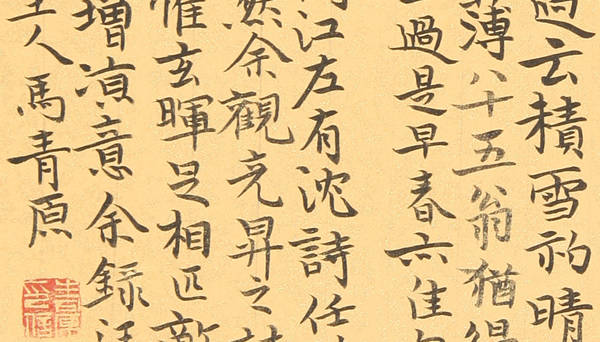 過云積雪初晴
薄八十五翁猶得
過是早春亦佳
江左有沈詩任
然余觀彥昇之詩
惟玄暉足相匹敵
增意余錄
人馬青原
青原印信